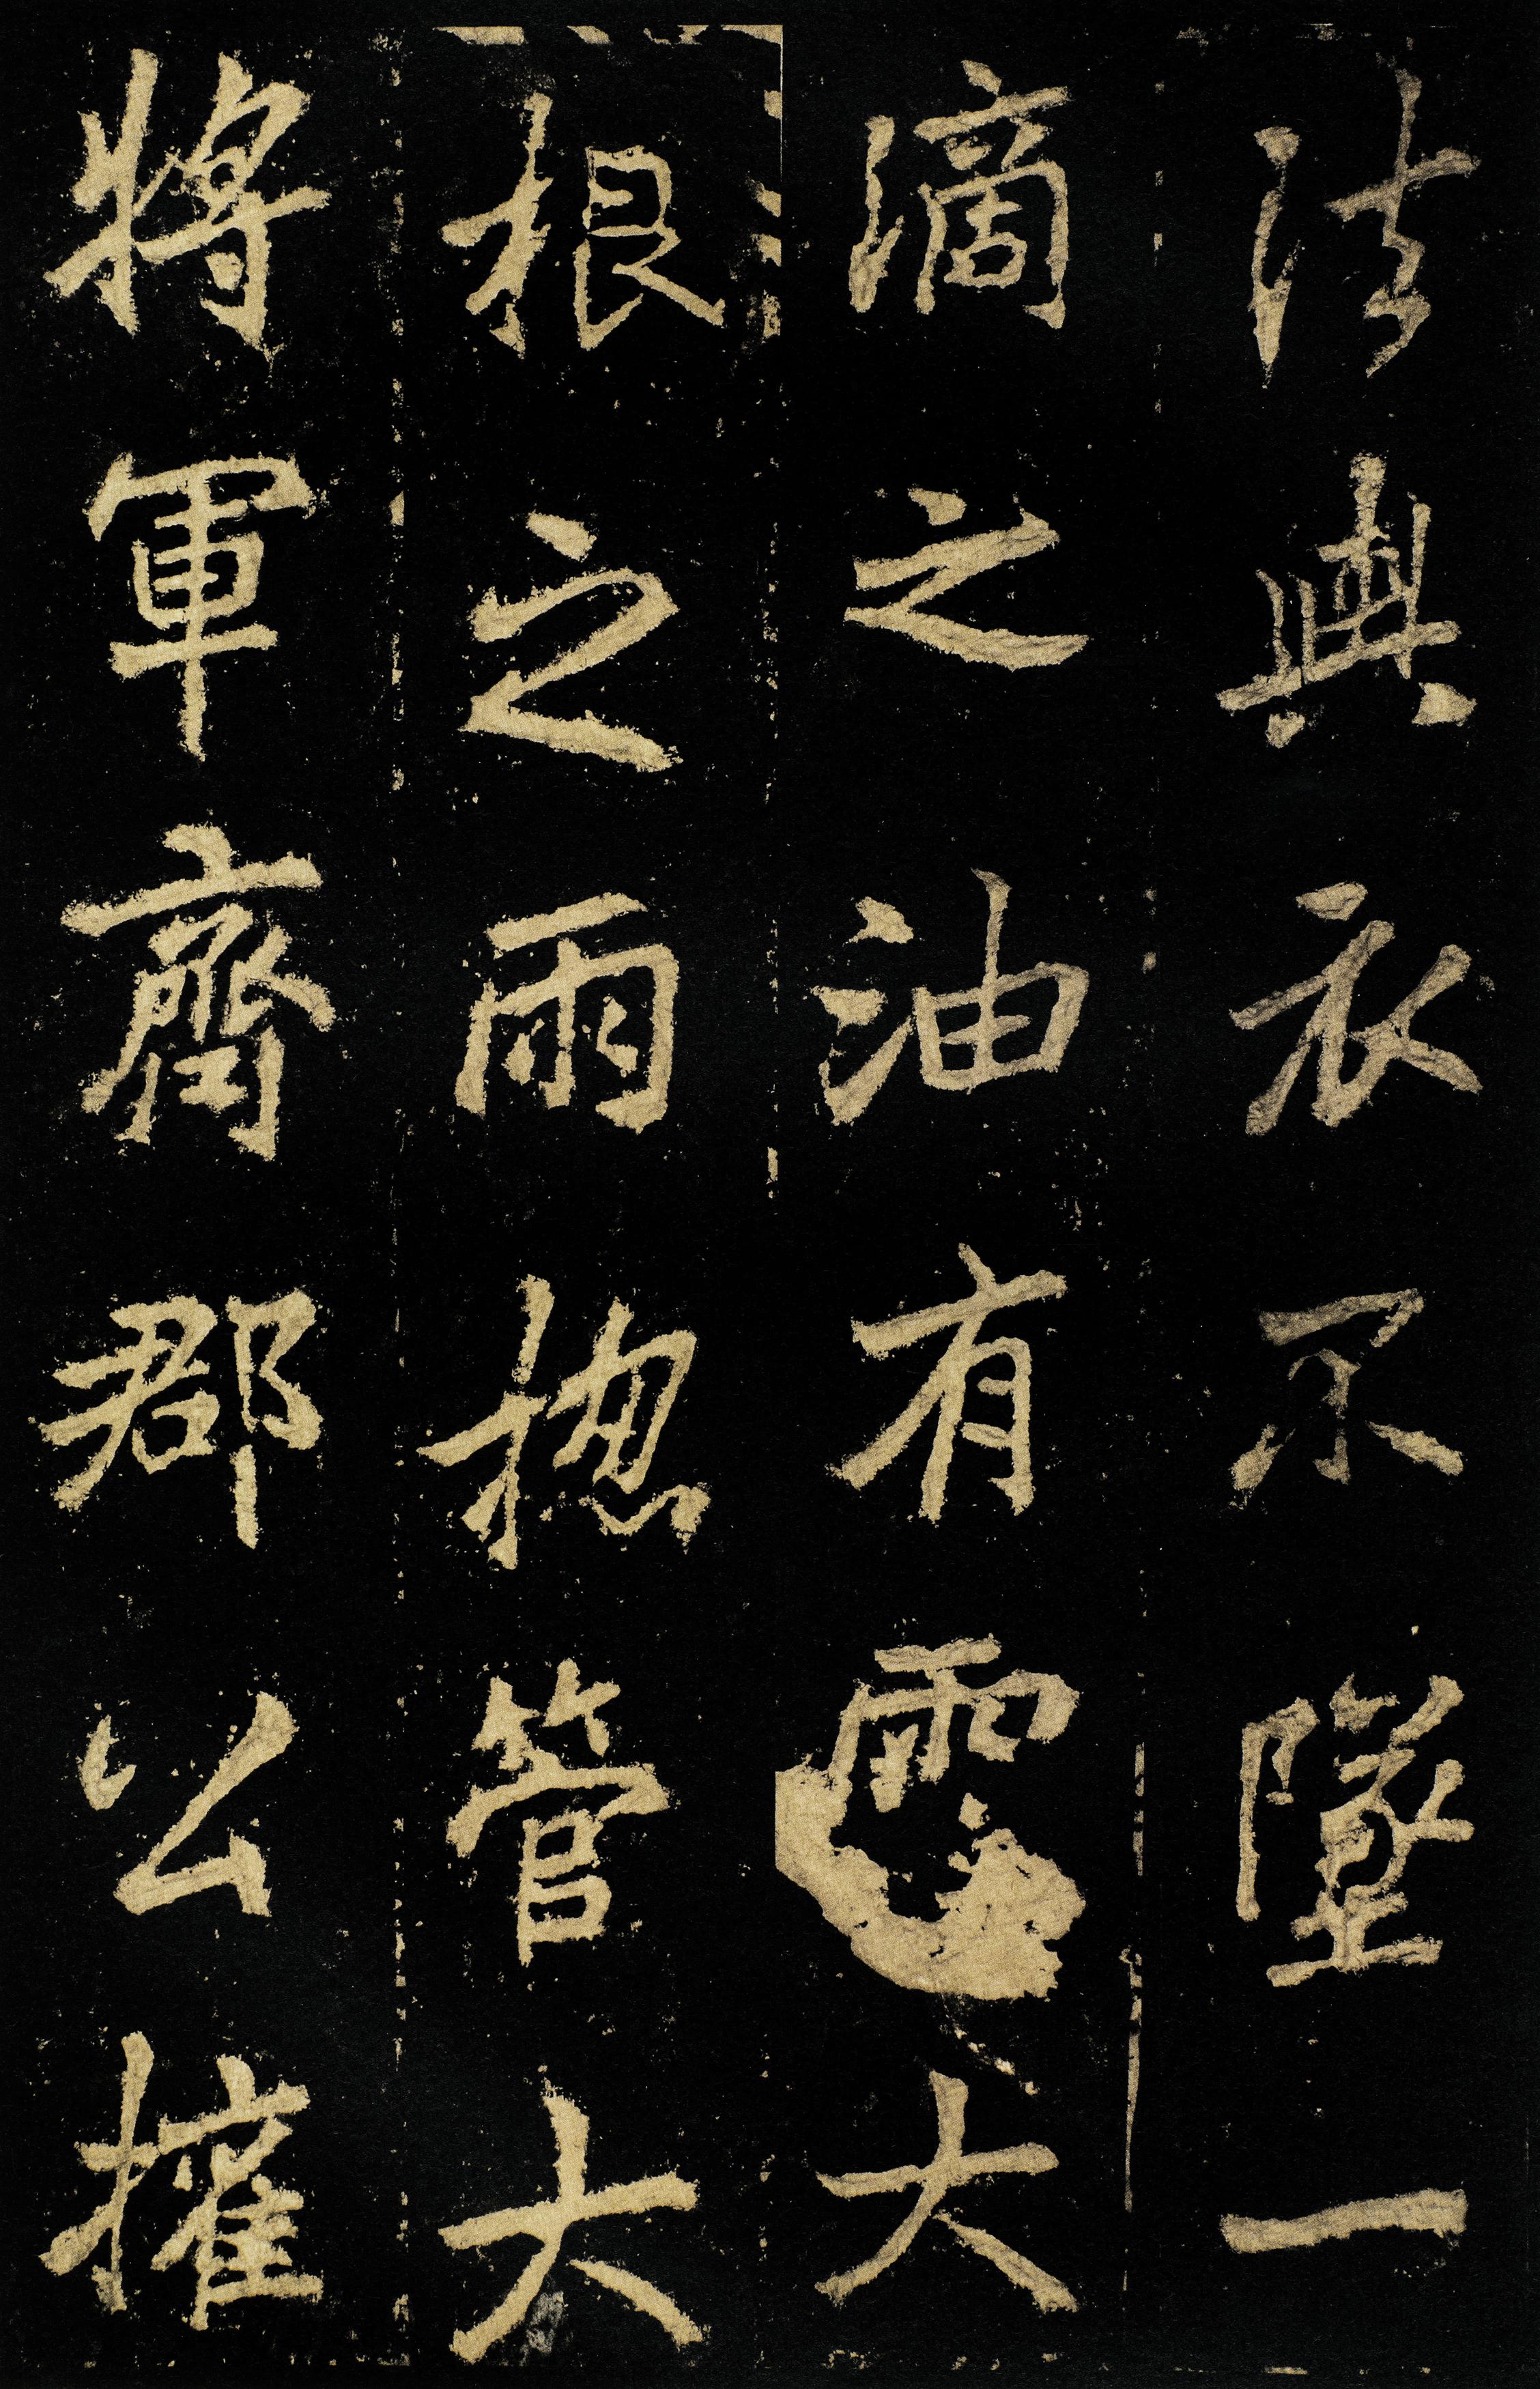 法輿衣不墜一
滴之油有大
根之雨揔管大
將軍齊郡公權